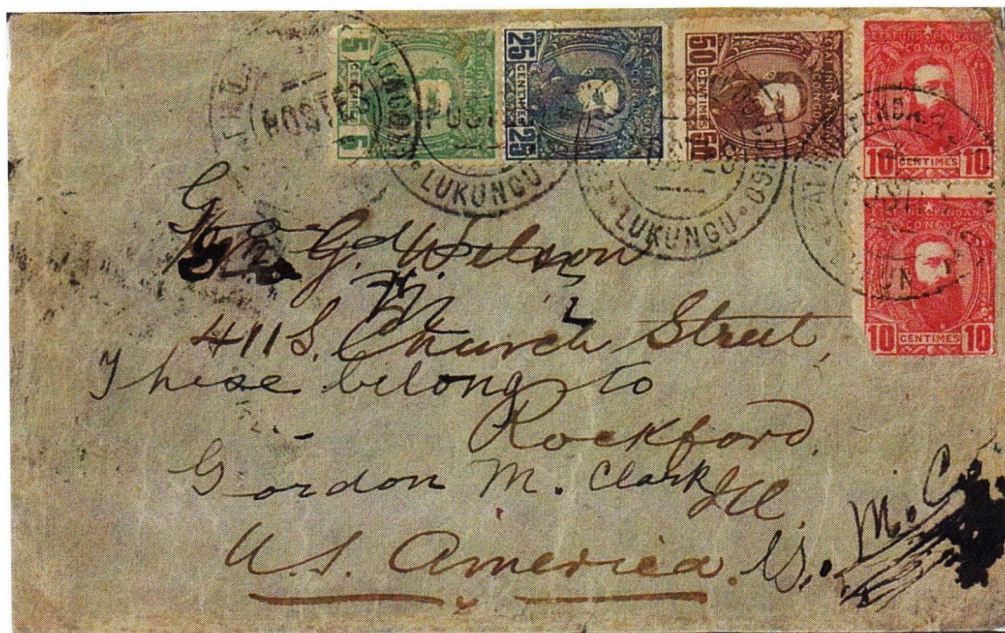 5 CENTIMES 5
25 CENTIMES 25
50 CENTIMES 50
ETAT INDEPENDANT
CONGO
10 CENTIMES 10
ETAT INDEPENDANT
CONGO
10 CENTIMES 10
LUKUNGU
LUKUNGU
G. Wilson
411 S. Church Street,
These belong to
Rockford,
Gordon M. Clark
Ill.
U.S. America.
G. M. C.